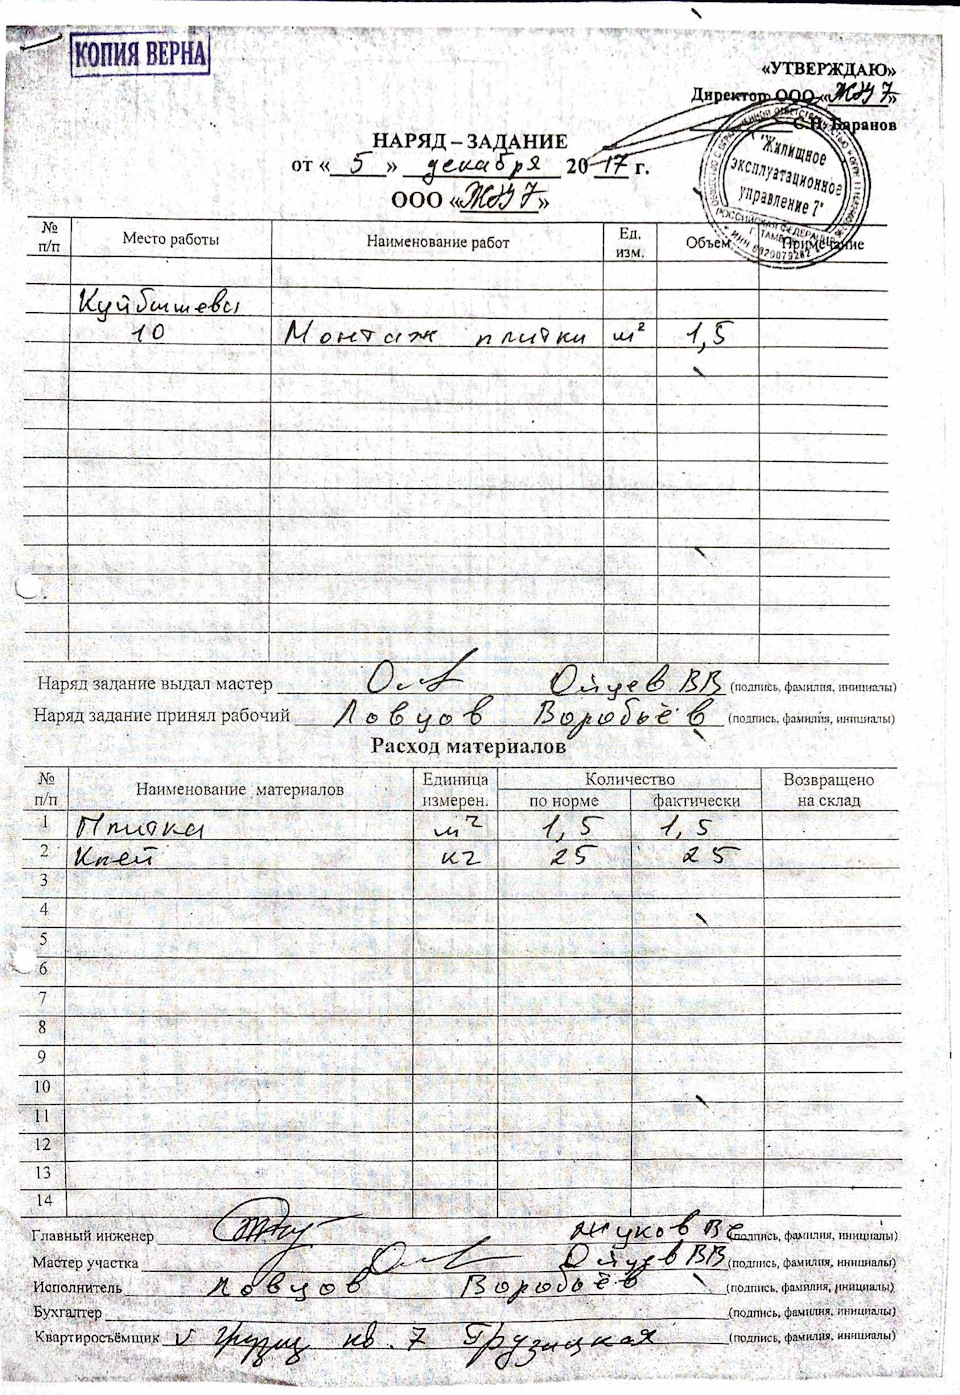 КОПИЯ ВЕРНА
«УТВЕРЖДАЮ»
Директор ООО «ЖЭУ 7»
С.Н. Баранов
НАРЯД – ЗАДАНИЕ
от « 5 » декабря 20 17 г.
ООО «ЖЭУ 7»
"Жилищное
эксплуатационное
управление 7"
РОССИЙСКАЯ ФЕДЕРАЦИЯ
№ п/п Место работы Наименование работ Ед. изм. Объем Примечание
Куйбышева
10 Монтаж плитки м² 1,5
Наряд задание выдал мастер ВВ (подпись, фамилия, инициалы)
Наряд задание принял рабочий Ловцов Воробьёв (подпись, фамилия, инициалы)
Расход материалов
№ п/п Наименование материалов Единица измерен. Количество Возвращено на склад
по норме фактически
1 Плитка м² 1,5 1,5
2 Клей кг 25 25
3
4
5
6
7
8
9
10
11
12
13
14
Главный инженер Жуков (подпись, фамилия, инициалы)
Мастер участка ВВ (подпись, фамилия, инициалы)
Исполнитель Ловцов Воробьёв (подпись, фамилия, инициалы)
Бухгалтер (подпись, фамилия, инициалы)
Квартиросъёмщик v кв. 7 Грузицкая (подпись, фамилия, инициалы)